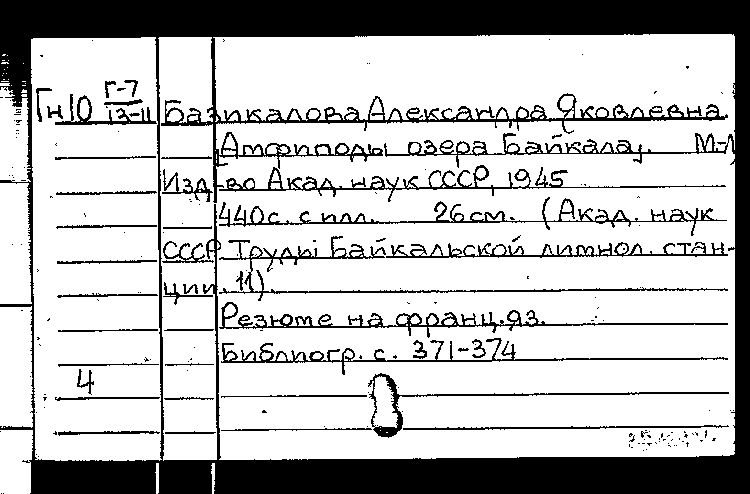 Гн10 Г-7/13-11 Базикалова, Александра Яковлевна.
[Амфиподы озера Байкала]. М-Л
Изд-во Акад. наук СССР, 1945
440с. с илл. 26см. (Акад. наук
СССР. Труды Байкальской лимнол. стан-
ции. 11).
Резюме на франц. яз.
Библиогр. с. 371-374
4